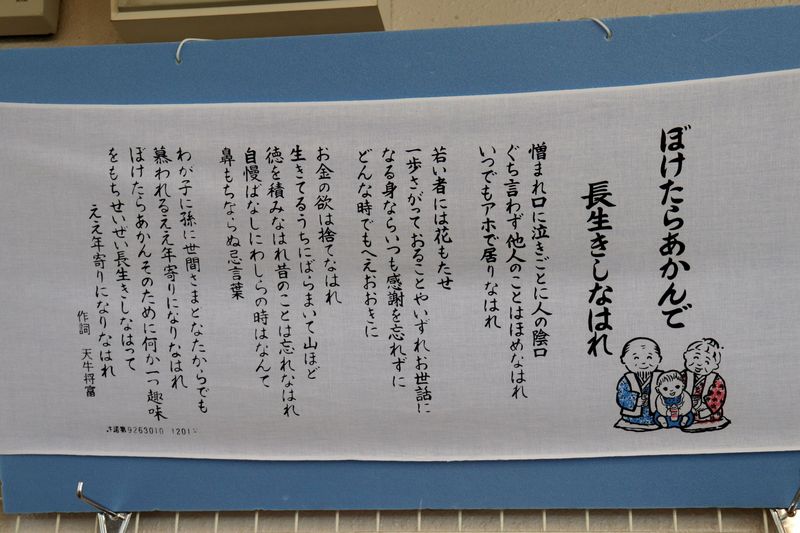 ぼけたらあかんで
長生きしなはれ
憎まれ口に泣きごとに人の陰口
ぐち言わず他人のことはほめなはれ
いつでもアホで居りなはれ
若い者には花もたせ
一歩さがっておることやいずれお世話に
なる身ならいつも感謝を忘れずに
どんな時でもへえおおきに
お金の欲は捨てなはれ
生きてるうちにばらまいて山ほど
徳を積みなはれ昔のことは忘れなはれ
自慢ばなしにわしらの時はなんて
鼻もちならぬ忌言葉
わが子に孫に世間さまとなたからでも
慕われるええ年寄りになりなはれ
ぼけたらあかんそのために何か一つ趣味
をもちせいぜい長生きしなはって
ええ年寄りになりなはれ
作詞 天牛将富
許諾第9263010 1201